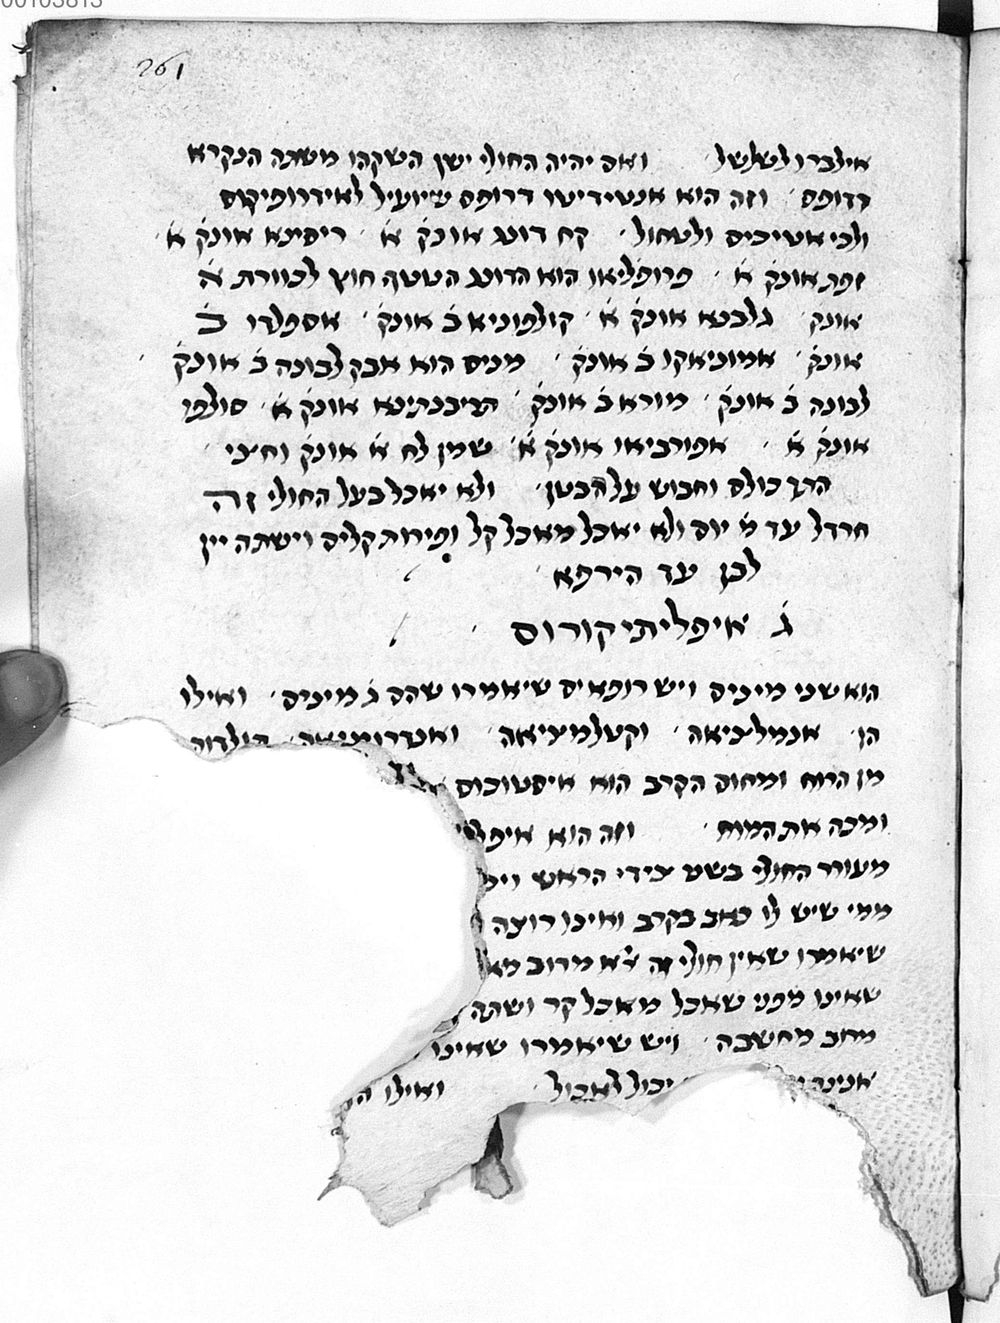 261
אילברו לשלשל ואם יהיה החולי ישן השקהו משתה הנקרא
רדופס וזה הוא אנטידיטו דרופס שיועיל לאידרופיקוס
ולכי אטיכיס ולטחול קח דונג אונק א ריסינא אונק א
זפת אונק א פרופליאו הוא הדונג הטטף חוץ לכוורת א
אונק גלבנא אונק א קולפוניא ב אונק אספלדו ב
אונק אמוניאקו ב אונק מניס הוא אבק לבונה ב אונק
לבונה ב אונק מורא ב אונק הריבנתינא אונק א סולפו
אונק א אפורביאו אונק א שמן לח א אונק וחיצי
הדך כולם וחבוש על הבטן ולא יאכל בעל החולי זה
חרדל עד מ יום ולא יאכל מאכל קל ופירות קלים וישתה יין
לבן עד הירפא
ג איפליתיקורוס
הוא שני מינים ויש רופאים שיאמרו שהם ג מינים ואילו
הן אנמליציאה וקטלמיציאה
מן הרוח ומחום הקרב הוא איסטוכוס
ומכה את המוח וזה הוא
מעורר החולי בשט צידי הראש
ממי שיש לו כאב בקרב ואינו רוצה
שיאמרו שאין חולי זה צא מרוב
שאינו מפני שאכל מאכל קר ושתה
מרוב מחשבה ויש שיאמרו שאינו
יכול לאכול ואילו